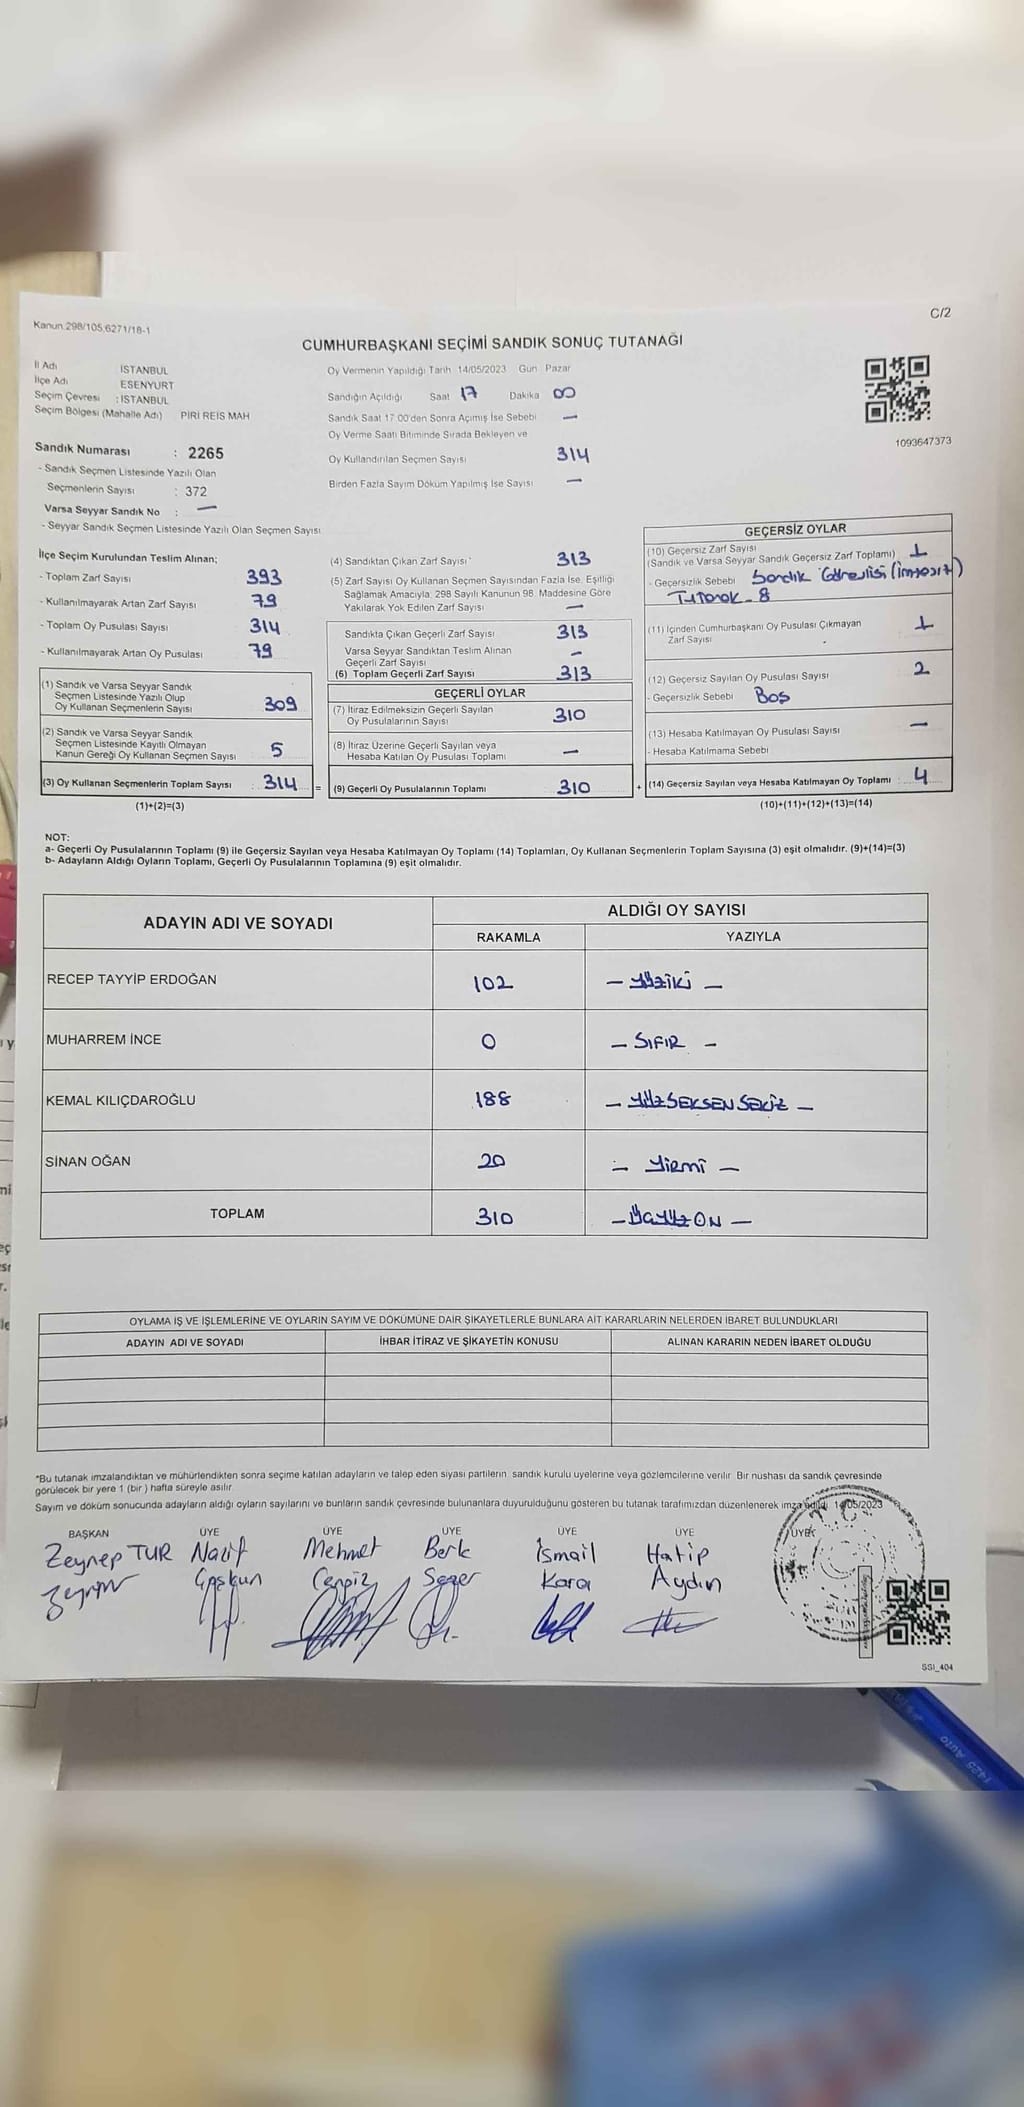 C/2
Kanun 298/105,6271/18-1
CUMHURBAŞKANI SEÇİMİ SANDIK SONUÇ TUTANAĞI
İl Adı İSTANBUL
İlçe Adı ESENYURT
Seçim Çevresi : İSTANBUL
Seçim Bölgesi (Mahalle Adı) PIRI REIS MAH
Oy Vermenin Yapıldığı Tarih 14/05/2023 Gün Pazar
Sandığın Açıldığı Saat 17 Dakika 00
Sandık Saat 17 00'den Sonra Açımış İse Sebebi —
Oy Verme Saati Bitiminde Sırada Bekleyen ve
Oy Kullandırılan Seçmen Sayısı 314
Birden Fazla Sayım Döküm Yapılmış İse Sayısı —
1093647373
Sandık Numarası : 2265
- Sandık Seçmen Listesinde Yazılı Olan
Seçmenlerin Sayısı : 372
Varsa Seyyar Sandık No : —
- Seyyar Sandık Seçmen Listesinde Yazılı Olan Seçmen Sayısı
İlçe Seçim Kurulundan Teslim Alınan;
- Toplam Zarf Sayısı 393
- Kullanılmayarak Artan Zarf Sayısı 79
- Toplam Oy Pusulası Sayısı 314
- Kullanılmayarak Artan Oy Pusulası 79
(1) Sandık ve Varsa Seyyar Sandık
Seçmen Listesinde Yazılı Olup
Oy Kullanan Seçmenlerin Sayısı 309
(2) Sandık ve Varsa Seyyar Sandık
Seçmen Listesinde Kayıtlı Olmayan
Kanun Gereği Oy Kullanan Seçmen Sayısı 5
(3) Oy Kullanan Seçmenlerin Toplam Sayısı : 314 =
(1)+(2)=(3)
(4) Sandıktan Çıkan Zarf Sayısı 313
(5) Zarf Sayısı Oy Kullanan Seçmen Sayısından Fazla İse, Eşitliği
Sağlamak Amacıyla, 298 Sayılı Kanunun 98. Maddesine Göre
Yakılarak Yok Edilen Zarf Sayısı —
Sandıkta Çıkan Geçerli Zarf Sayısı 313
Varsa Seyyar Sandıktan Teslim Alınan
Geçerli Zarf Sayısı —
(6) Toplam Geçerli Zarf Sayısı 313
GEÇERLİ OYLAR
(7) İtiraz Edilmeksizin Geçerli Sayılan
Oy Pusulalarının Sayısı 310
(8) İtiraz Üzerine Geçerli Sayılan veya
Hesaba Katılan Oy Pusulası Toplamı —
(9) Geçerli Oy Pusulalarının Toplamı 310 +
GEÇERSİZ OYLAR
(10) Geçersiz Zarf Sayısı
(Sandık ve Varsa Seyyar Sandık Geçersiz Zarf Toplamı) 1
- Geçersizlik Sebebi Sandık Görevlisi (İmzasız)
Tutanak_8
(11) İçinden Cumhurbaşkanı Oy Pusulası Çıkmayan
Zarf Sayısı 1
(12) Geçersiz Sayılan Oy Pusulası Sayısı 2
- Geçersizlik Sebebi Boş
(13) Hesaba Katılmayan Oy Pusulası Sayısı —
- Hesaba Katılmama Sebebi
(14) Geçersiz Sayılan veya Hesaba Katılmayan Oy Toplamı : 4
(10)+(11)+(12)+(13)=(14)
NOT:
a- Geçerli Oy Pusulalarının Toplamı (9) ile Geçersiz Sayılan veya Hesaba Katılmayan Oy Toplamı (14) Toplamları, Oy Kullanan Seçmenlerin Toplam Sayısına (3) eşit olmalıdır. (9)+(14)=(3)
b- Adayların Aldığı Oyların Toplamı, Geçerli Oy Pusulalarının Toplamına (9) eşit olmalıdır.
ADAYIN ADI VE SOYADI ALDIĞI OY SAYISI
RAKAMLA YAZIYLA
RECEP TAYYİP ERDOĞAN 102 — yüziki —
MUHARREM İNCE 0 — SIFIR —
KEMAL KILIÇDAROĞLU 188 — yüzSEKSENSEKİZ —
SİNAN OĞAN 20 — yirmi —
TOPLAM 310 — ÜçyüzON —
OYLAMA İŞ VE İŞLEMLERİNE VE OYLARIN SAYIM VE DÖKÜMÜNE DAİR ŞİKAYETLERLE BUNLARA AİT KARARLARIN NELERDEN İBARET BULUNDUKLARI
ADAYIN ADI VE SOYADI İHBAR İTİRAZ VE ŞİKAYETİN KONUSU ALINAN KARARIN NEDEN İBARET OLDUĞU
*Bu tutanak imzalandıktan ve mühürlendikten sonra seçime katılan adayların ve talep eden siyasi partilerin sandık kurulu üyelerine veya gözlemcilerine verilir. Bir nüshası da sandık çevresinde
görülecek bir yere 1 (bir) hafta süreyle asılır.
Sayım ve döküm sonucunda adayların aldığı oyların sayılarını ve bunların sandık çevresinde bulunanlara duyurulduğunu gösteren bu tutanak tarafımızdan düzenlenerek imza edildi 14/05/2023
BAŞKAN ÜYE ÜYE ÜYE ÜYE ÜYE ÜYE
Zeynep TUR Nazif Mehmet Berk İsmail Hatip
Coşkun Cengiz Sezer Kara Aydın
T.C.
SSI_404
1425 Auto